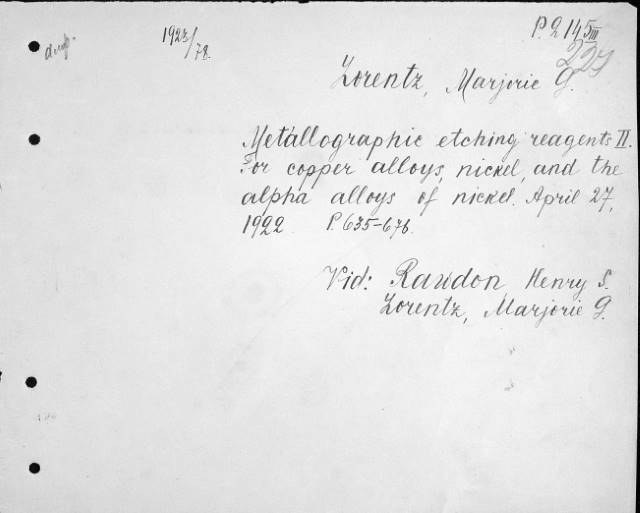 dupl.
1923/78.
P. 2145 III
227
Lorentz, Marjorie G.
Metallographic etching reagents II.
For copper alloys, nickel, and the
alpha alloys of nickel. April 27,
1922 P. 635-676.
Vid: Rawdon, Henry S.
Lorentz, Marjorie G.